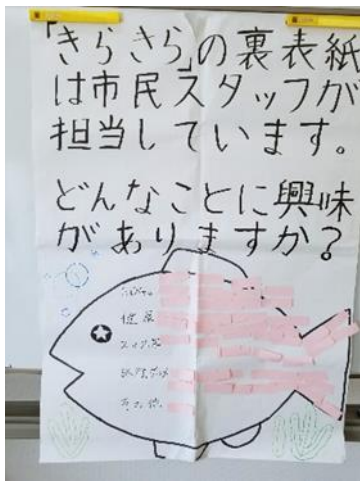 「きらきら」の裏表紙
は市民スタッフが
担当しています。
どんなことに興味
がありますか?
健康
その他